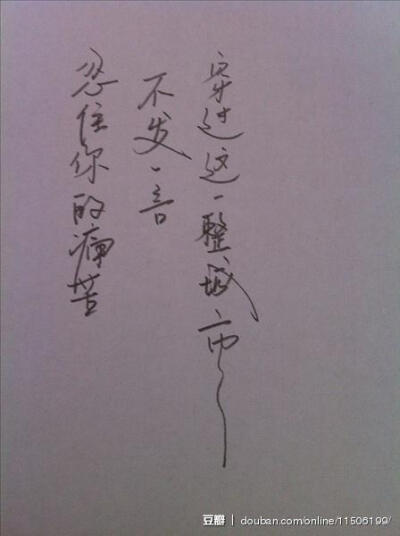 忍住你的痛苦
不发一言
穿过这一整城市
豆瓣 | douban.com/online/11506199/